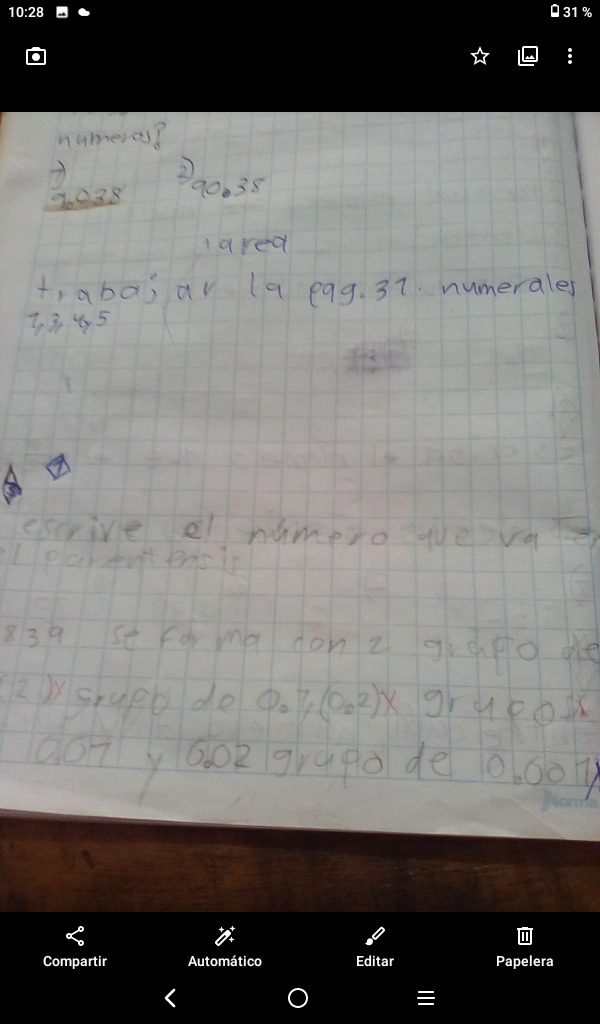 10:28
31 %
numeros?
1)
2)
9.038
90.38
tarea
trabajar la pag. 31. numerales
1, 3, 4, 5
1
escrive el número que va en
el parentensis
839 se forma con 2 grupo de
(2)x grupo de 0.1, (0.2)x grupos x
0.01 y 0.02 grupo de 0.001)
Norma
Compartir
Automático
Editar
Papelera